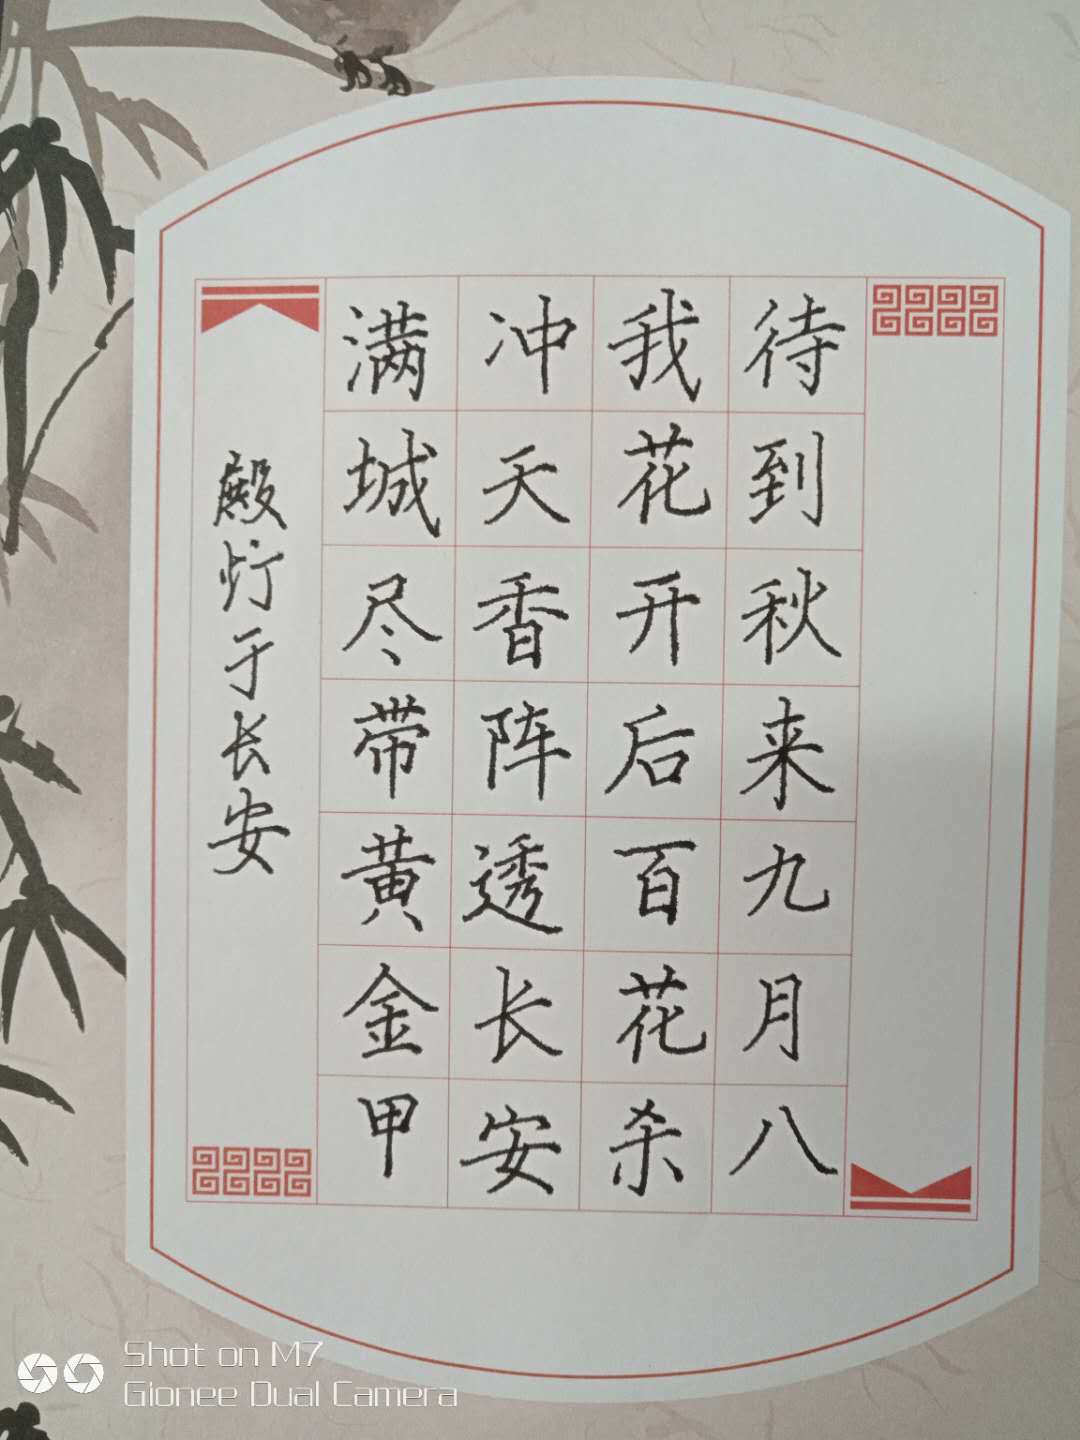 待到秋来九月八
我花开后百花杀
冲天香阵透长安
满城尽带黄金甲
殿灯于长安
Shot on M7
Gionee Dual Camera